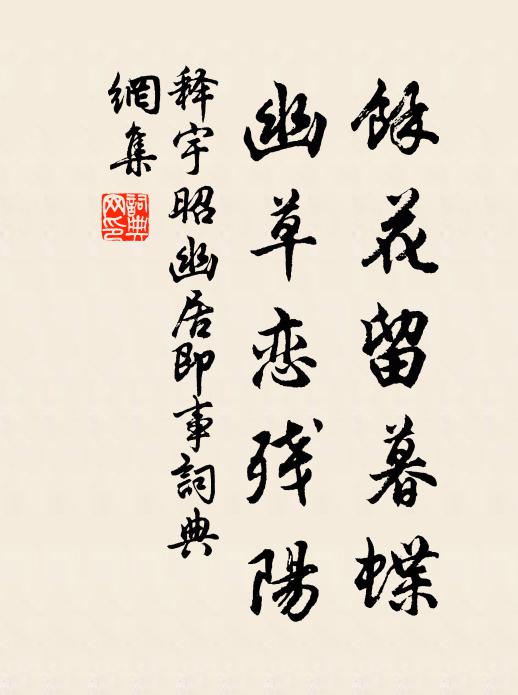 餘花留暮蝶
幽草恋残陽
释宇昭幽居即事詞典
網集
詞典
网印